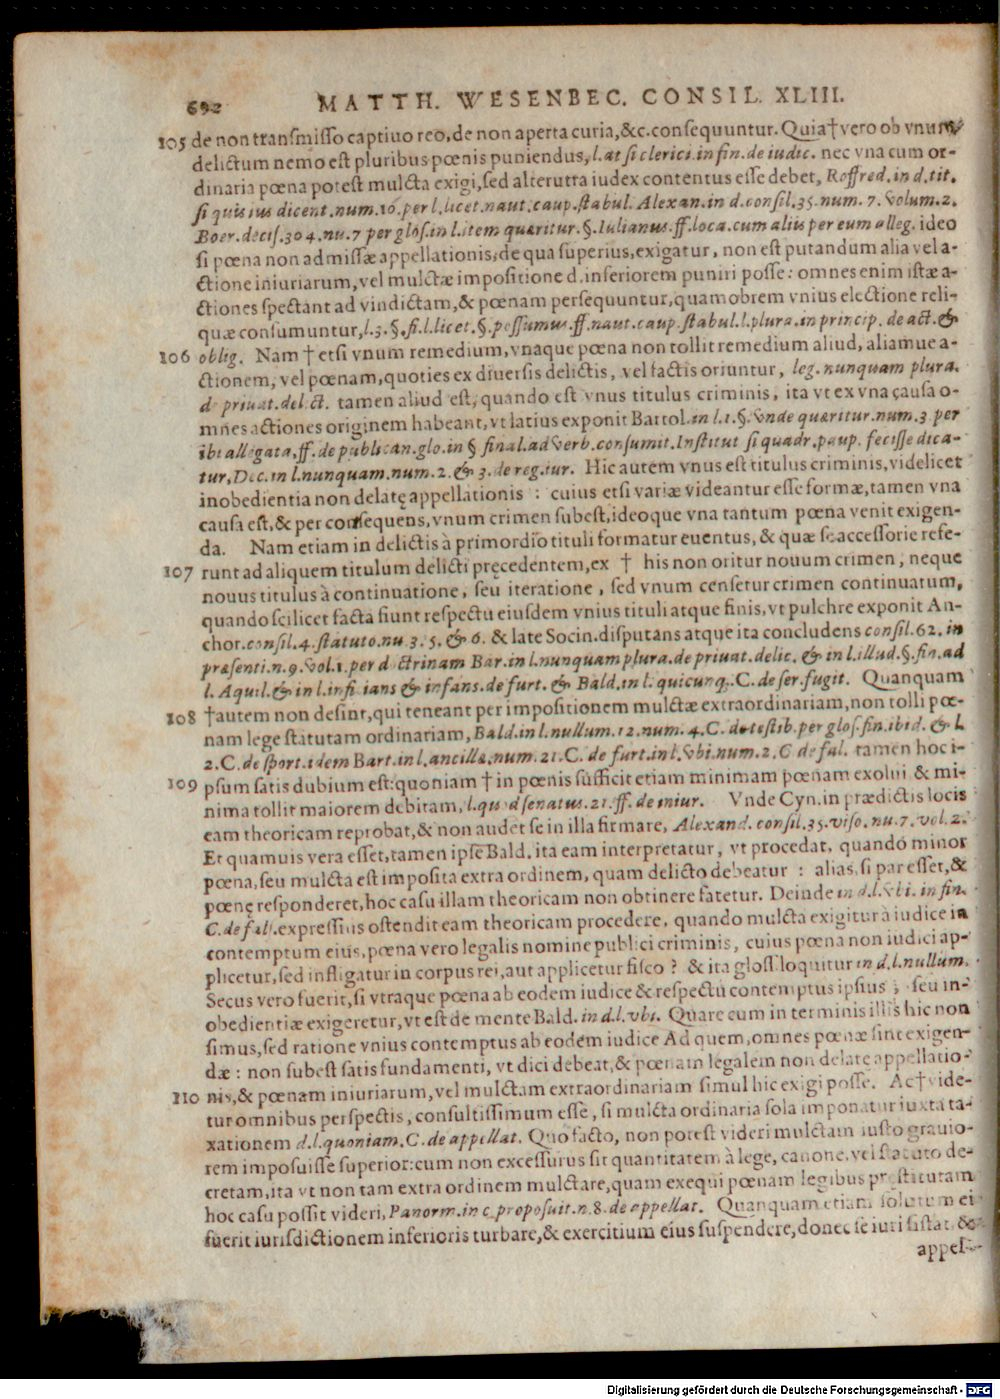 692 MATTH. WESENBEC. CONSIL. XLIII.
105 de non transmisso captiuo reo, de non aperta curia, &c. consequuntur. Quia † vero ob vnum
delictum nemo est pluribus pœnis puniendus, l. at si clerici. in fin. de iudic. nec vna cum or-
dinaria pœna potest mulcta exigi, sed alterutra iudex contentus esse debet, Roffred. in d. tit.
si quis ius dicent. num. 16. per l. licet. naut. caup. stabul. Alexan. in d. consil. 35. num. 7. volum. 2.
Boer. decis. 304. nu. 7 per glos. in l. item quæritur. §. Iulianus. ff. loca. cum alius per eum alleg. ideo
si pœna non admissæ appellationis, de qua superius, exigatur, non est putandum alia vel a-
ctione iniuriarum, vel mulctæ impositione d. inferiorem puniri posse: omnes enim istæ a-
ctiones spectant ad vindictam, & pœnam persequuntur, quamobrem vnius electione reli-
quæ consumuntur, l. 3. §. fi. l. licet. §. possumus. ff. naut. caup. stabul. l. plura. in princip. de act. &
106 oblig. Nam † etsi vnum remedium, vnaque pœna non tollit remedium aliud, aliamue a-
ctionem, vel pœnam, quoties ex diuersis delictis, vel factis oriuntur, leg. nunquam plura.
de priuat. delict. tamen aliud est, quando est vnus titulus criminis, ita vt ex vna causa o-
mnes actiones originem habeant, vt latius exponit Bartol. in l. 1. §. vnde quæritur. num. 3 per
ibi allegata, ff. de publican. glo. in § final. ad verb. consumit. Institut si quadr. paup. fecisse dica-
tur, Dec. in l. nunquam. num. 2. & 3. de reg. iur. Hic autem vnus est titulus criminis, videlicet
inobedientia non delatę appellationis : cuius etsi variæ videantur esse formæ, tamen vna
causa est, & per consequens, vnum crimen subest, ideoque vna tantum pœna venit exigen-
da. Nam etiam in delictis à primordio tituli formatur euentus, & quæ se accessorie refe-
107 runt ad aliquem titulum delicti pręcedentem, ex † his non oritur nouum crimen, neque
nouus titulus à continuatione, seu iteratione, sed vnum censetur crimen continuatum,
quando scilicet facta fiunt respectu eiusdem vnius tituli atque finis, vt pulchre exponit An-
chor. consil. 4. statuto. nu 3. 5. & 6. & late Socin. disputans atque ita concludens consil. 62. in
præsenti. n. 9. vol. 1. per doctrinam Bar. in l. nunquam plura. de priuat. delic. & in l. illud. §. fin. ad
l. Aquil. & in l. infitians & infans. de furt. & Bald. in l. quicunq. C. de ser. fugit. Quanquam
108 † autem non desint, qui teneant per impositionem mulctæ extraordinariam, non tolli pœ-
nam lege statutam ordinariam, Bald. in l. nullum. 12. num. 4. C. de testib. per glos. fin. ibid. & l.
2. C. de sport. idem Bart. in l. ancillæ. num. 21. C. de furt. in l. vbi. num. 2. C de fal. tamen hoc i-
109 psum satis dubium est: quoniam † in pœnis sufficit etiam minimam pœnam exolui & mi-
nima tollit maiorem debitam, l. quod senatus. 21. ff. de iniur. Vnde Cyn. in prædictis locis
eam theoricam reprobat, & non audet se in illa firmare, Alexand. consil. 35. viso. nu. 7. vol. 2.
Et quamuis vera esset, tamen ipse Bald. ita eam interpretatur, vt procedat, quando minor
pœna, seu mulcta est imposita extra ordinem, quam delicto debeatur : alias, si par esset, &
pœnę responderet, hoc casu illam theoricam non obtinere fatetur. Deinde in d. l. vbi. in fin.
C. de fals. expressius ostendit eam theoricam procedere, quando mulcta exigitur à iudice in
contemptum eius, pœna vero legalis nomine publici criminis, cuius pœna non iudici ap-
plicetur, sed infligatur in corpus rei, aut applicetur fisco ? & ita gloss loquitur in d. l. nullum.
Secus vero fuerit, si vtraque pœna ab eodem iudice & respectu contemptus ipsius ; seu in-
obedientiæ exigeretur, vt est de mente Bald. in d. l. vbi. Quare cum in terminis illis hic non
simus, sed ratione vnius contemptus ab eodem iudice Ad quem, omnes pœnæ sint exigen-
dæ : non subest satis fundamenti, vt dici debeat, & pœnam legalem non delatę appellatio-
110 nis, & pœnam iniuriarum, vel mulctam extraordinariam simul hic exigi posse. Ac † vide-
tur omnibus perspectis, consultissimum esse, si mulcta ordinaria sola imponatur iuxta ta-
xationem d. l. quoniam. C. de appellat. Quo facto, non potest videri mulctam iusto grauio-
rem imposuisse superior: cum non excessurus sit quantitatem à lege, canone, vel statuto de-
cretam, ita vt non tam extra ordinem mulctare, quam exequi pœnam legibus præstitutam
hoc casu possit videri, Panorm. in c. proposuit. n. 8. de appellat. Quanquam etiam solutum ei
fuerit iurisdictionem inferioris turbare, & exercitium eius suspendere, donec se iuri sistat &
appel-
Digitalisierung gefördert durch die Deutsche Forschungsgemeinschaft - DFG